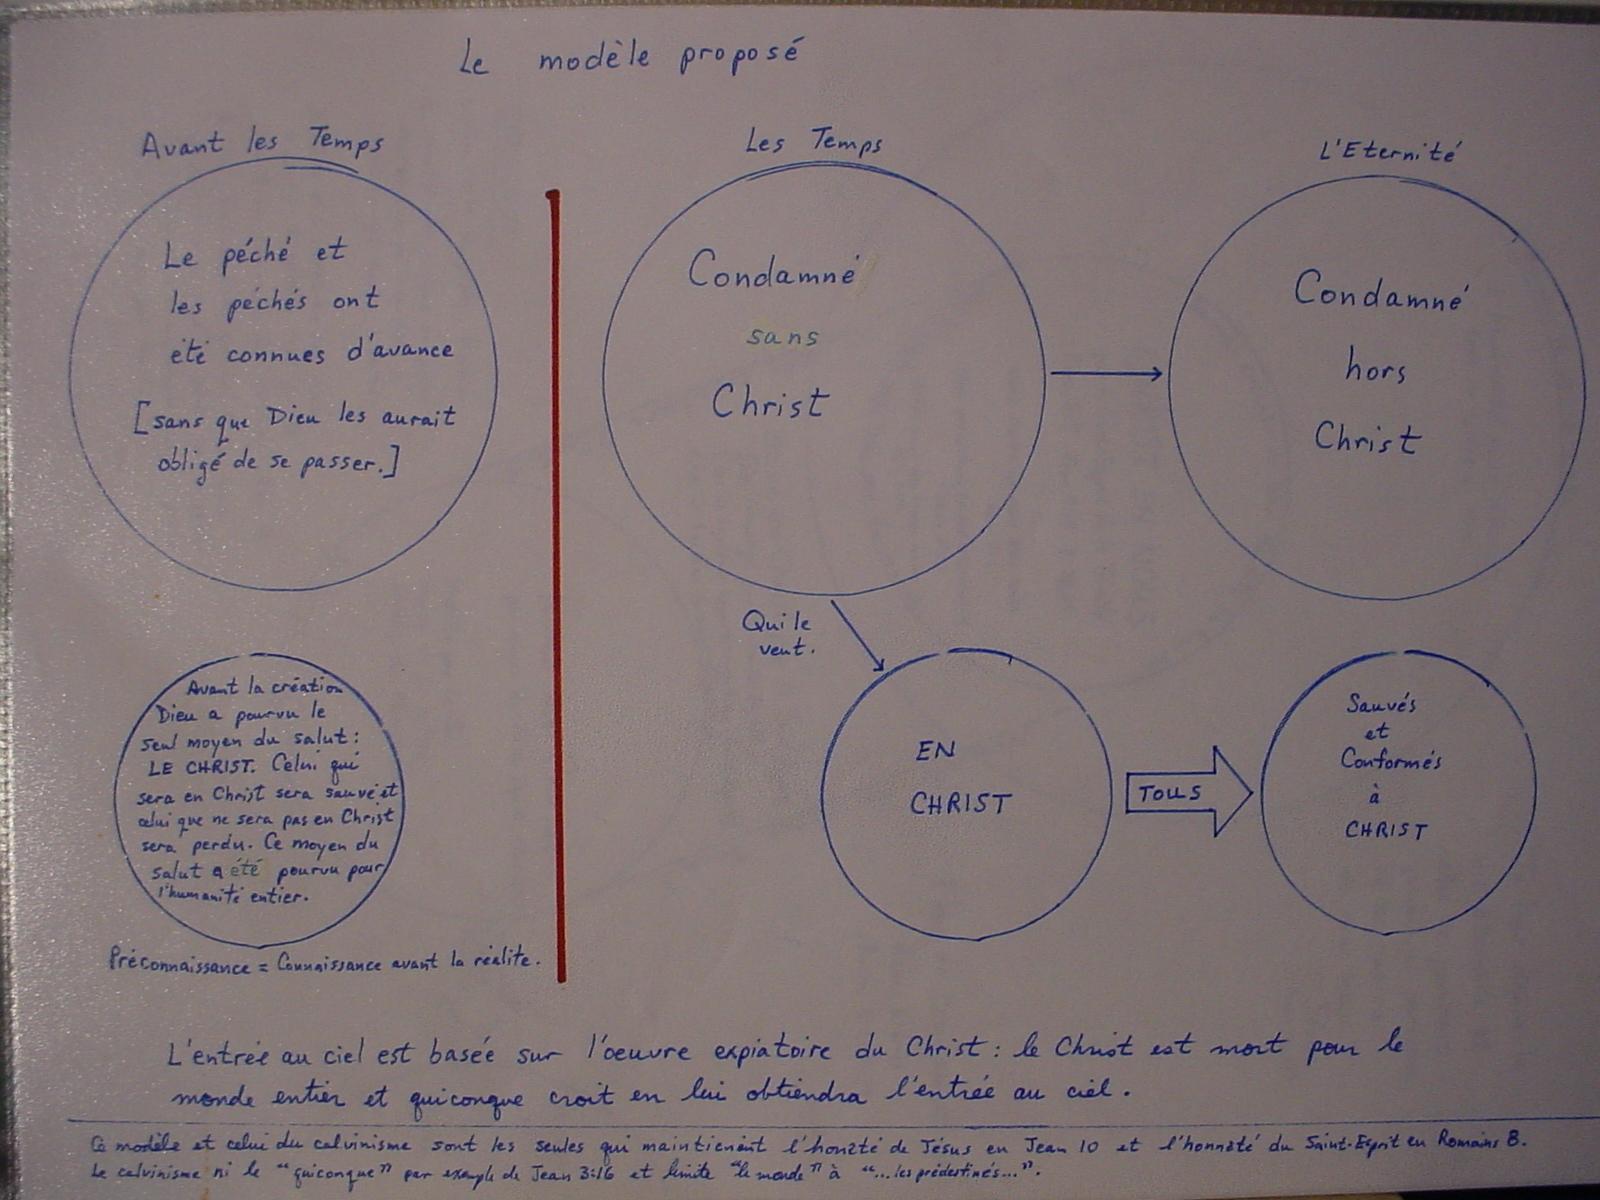 Le modèle proposé
Avant les Temps
Le péché et
les péchés ont
été connues d'avance
[sans que Dieu les aurait
obligé de se passer.]
Avant la création
Dieu a pourvu le
seul moyen du salut:
LE CHRIST. Celui qui
sera en Christ sera sauvé et
celui que ne sera pas en Christ
sera perdu. Ce moyen du
salut a été pourvu pour
l'humanité entier.
Préconnaissance = Connaissance avant la réalite.
Les Temps
Condamné
sans
Christ
Qui le
veut.
EN
CHRIST
TOUS
L'Eternité
Condamné
hors
Christ
Sauvés
et
Conformés
à
CHRIST
L'entrée au ciel est basée sur l'oeuvre expiatoire du Christ: le Christ est mort pour le
monde entier et quiconque croit en lui obtiendra l'entrée au ciel.
Ce modèle et celui du calvinisme sont les seules qui maintienent l'honêté de Jésus en Jean 10 et l'honnêté du Saint-Esprit en Romains 8.
Le calvinisme ni le "quiconque" par exemple de Jean 3:16 et limite "le monde" à "...les prédestinés...".